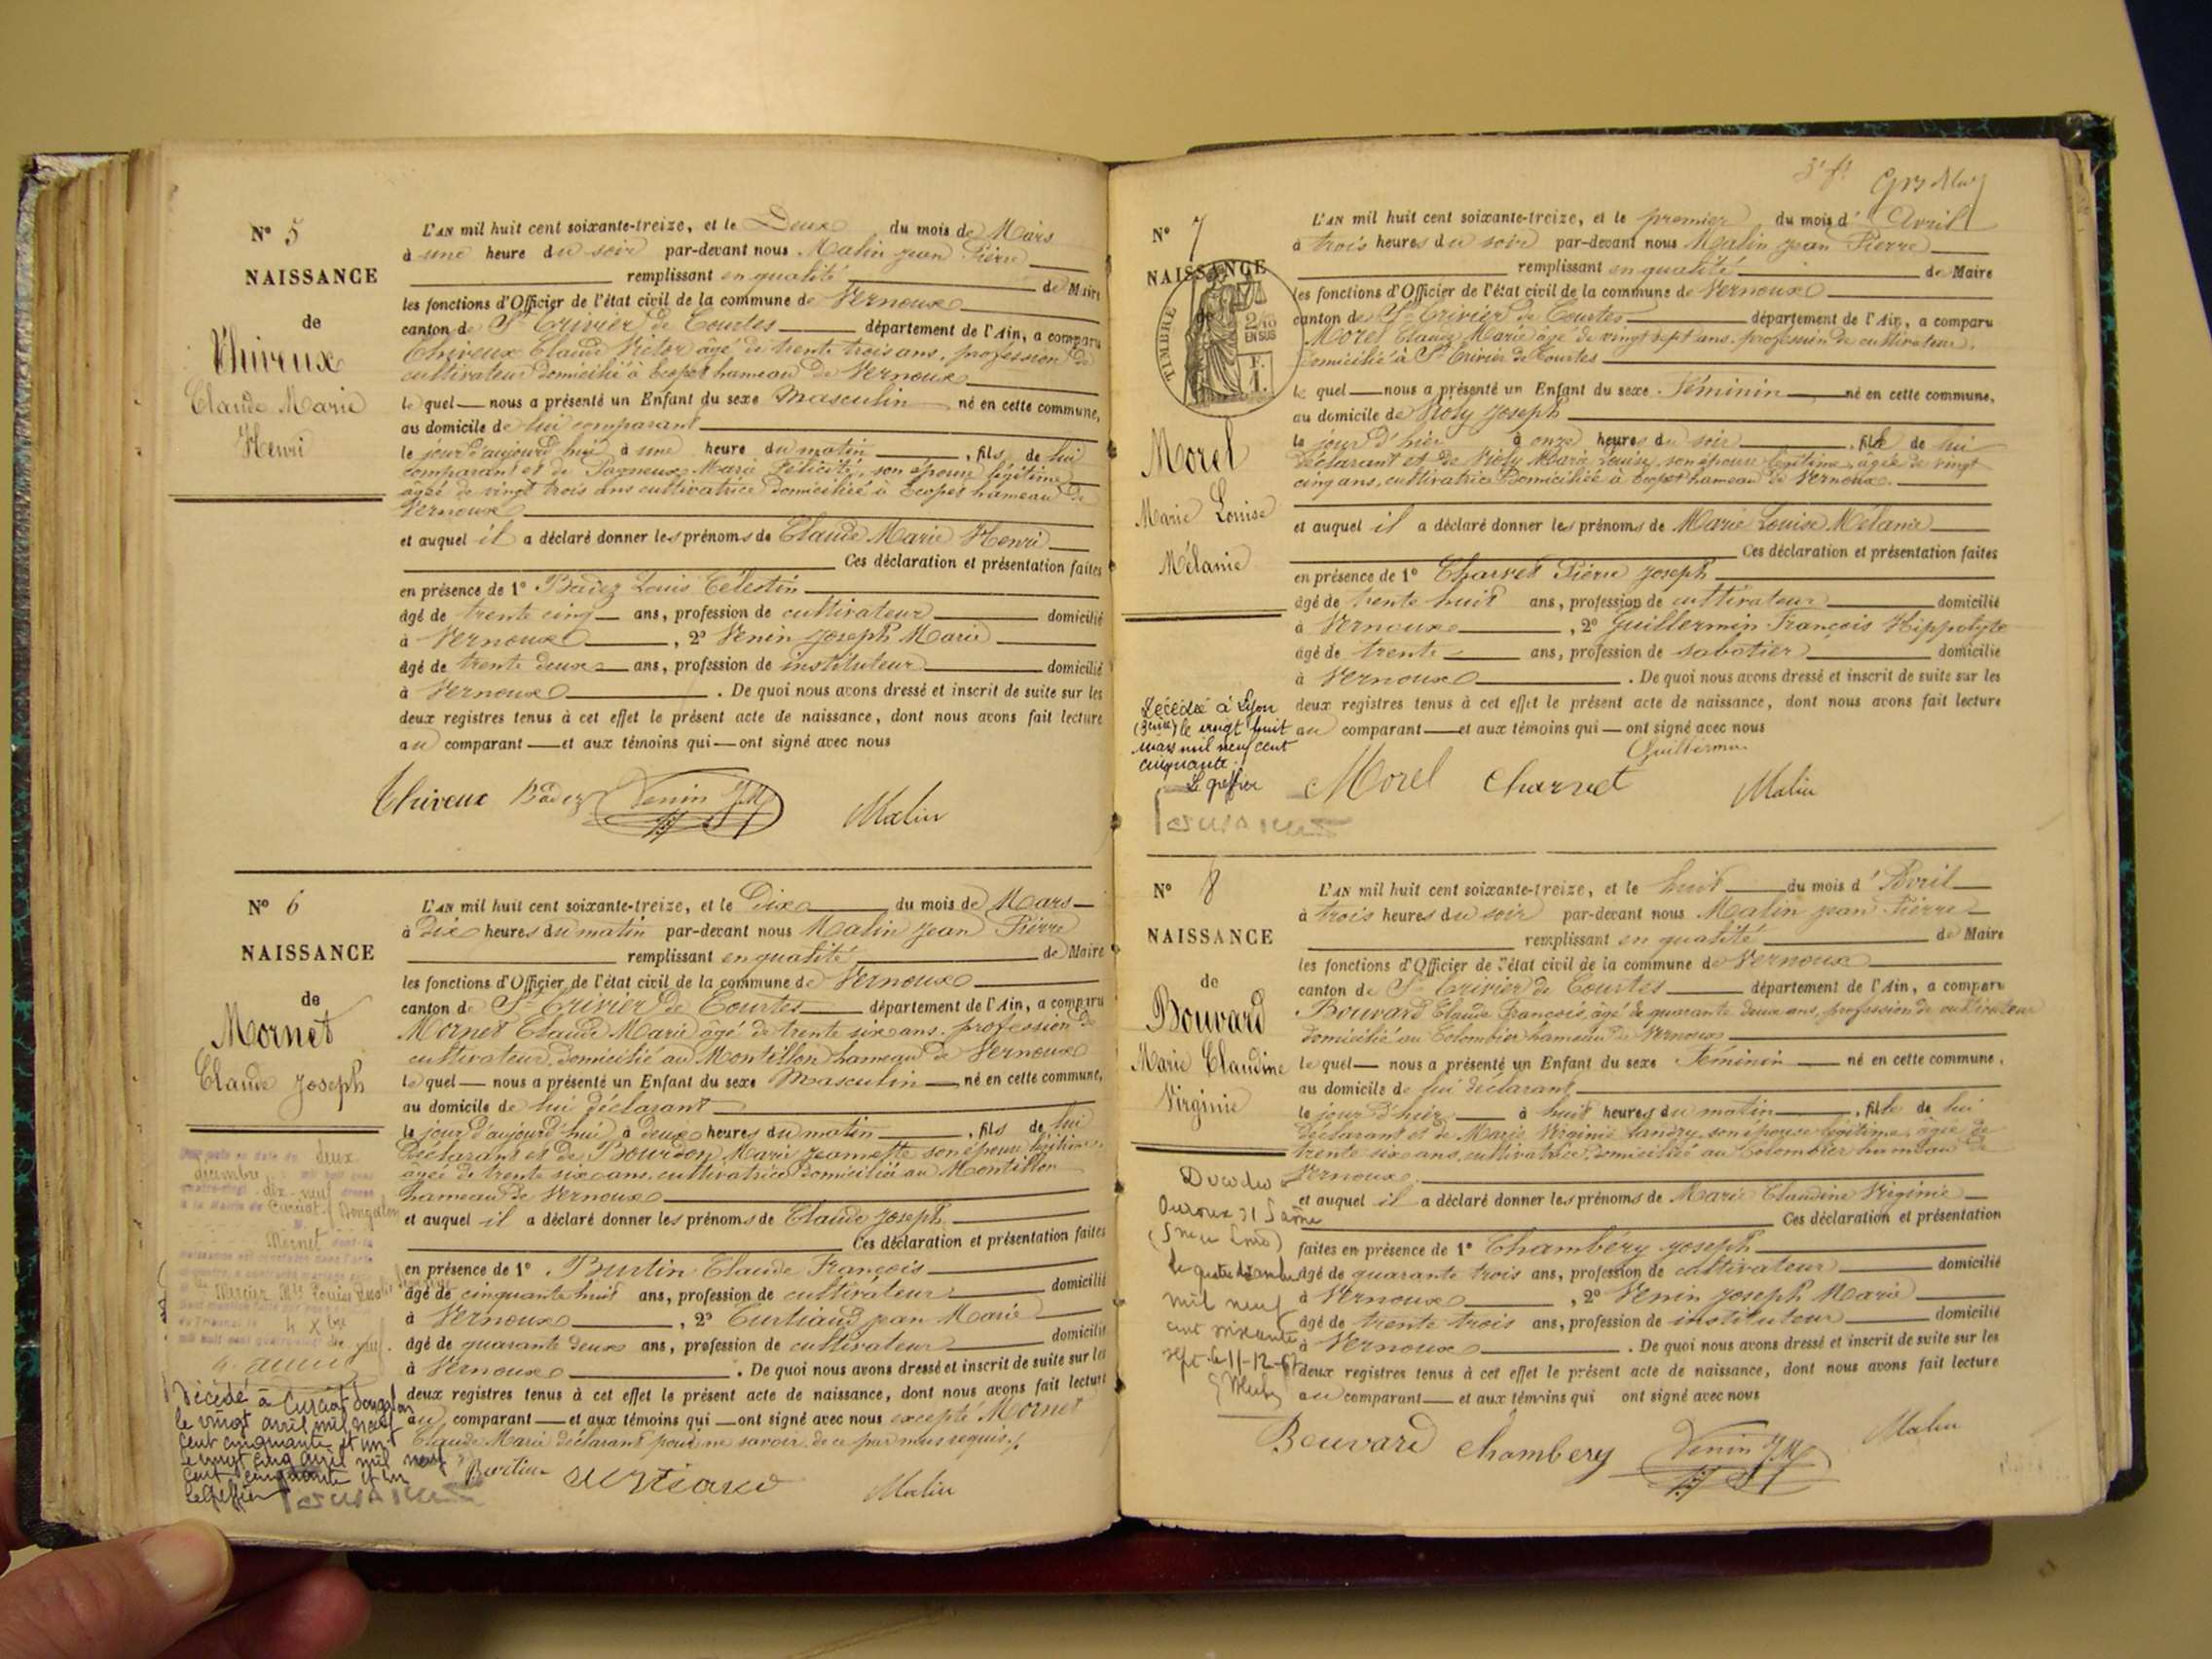 N° 5
NAISSANCE
de
Thiveux
Claude Marie
Henri
L'AN mil huit cent soixante-treize, et le Deux du mois de Mars
à une heure du soir par-devant nous Malin jean Pierre
remplissant en qualité de Maire
les fonctions d'Officier de l'état civil de la commune de Vernoux
canton de St Trivier de Courtes département de l'Ain, a comparu
Thiveux Claude Victor âgé de trente trois ans, profession de
cultivateur domicilié à Ecopet hameau de Vernoux
le quel nous a présenté un Enfant du sexe Masculin né en cette commune,
au domicile de lui comparant
le jour d'aujourd'hui à une heure du matin, fils de lui
comparant et de Pagneux Marie Félicité, son épouse légitime
âgée de vingt trois ans cultivatrice domiciliée à Ecopet hameau de
Vernoux
et auquel il a déclaré donner les prénoms de Claude Marie Henri
Ces déclaration et présentation faites
en présence de 1° Badez Louis Célestin
âgé de trente cinq ans, profession de cultivateur domicilié
à Vernoux, 2° Venin Joseph Marie
âgé de trente deux ans, profession de instituteur domicilié
à Vernoux. De quoi nous avons dressé et inscrit de suite sur les
deux registres tenus à cet effet le présent acte de naissance, dont nous avons fait lecture
au comparant et aux témoins qui ont signé avec nous
Thiveux Badez Venin J.M Malin
N° 6
NAISSANCE
de
Mornet
Claude Joseph
L'AN mil huit cent soixante-treize, et le Dix du mois de Mars
à dix heures du matin par-devant nous Malin Jean Pierre
remplissant en qualité de Maire
les fonctions d'Officier de l'état civil de la commune de Vernoux
canton de St Trivier de Courtes département de l'Ain, a comparu
Mornet Claude Marie âgé de trente six ans, profession de
cultivateur, domicilié au Montillon hameau de Vernoux
le quel nous a présenté un Enfant du sexe Masculin né en cette commune,
au domicile de lui déclarant
le jour d'aujourd'hui à deux heures du matin, fils de lui
déclarant et de Bourdon Marie Jeannette son épouse légitime
âgée de trente six ans, cultivatrice domiciliée au Montillon
hameau de Vernoux
et auquel il a déclaré donner les prénoms de Claude Joseph
Ces déclaration et présentation faites
en présence de 1° Burtin Claude François
âgé de cinquante huit ans, profession de cultivateur domicilié
à Vernoux, 2° Curtiaud jean Marie
âgé de quarante deux ans, profession de cultivateur domicilié
à Vernoux. De quoi nous avons dressé et inscrit de suite sur les
deux registres tenus à cet effet le présent acte de naissance, dont nous avons fait lecture
au comparant et aux témoins qui ont signé avec nous excepté Mornet
Claude Marie déclarant pour ne savoir de ce par nous requis.
Burtin Curtiaud Malin
deux
décembre
dix-neuf
Curciat Dongalon
Mornet
Mercier Mie Louise
4 Xbre
Décédé à Curciat Dongalon
le vingt avril mil neuf
cent cinquante et un
le vingt cinq avril mil neuf
cent cinquante et un
Le Greffier
N° 7
NAISSANCE
de
TIMBRE
2/10
EN SUS
F.
1.
Morel
Marie Louise
Mélanie
L'AN mil huit cent soixante-treize, et le premier du mois d'Avril
à trois heures du soir par-devant nous Malin jean Pierre
remplissant en qualité de Maire
les fonctions d'Officier de l'état civil de la commune de Vernoux
canton de St Trivier de Courtes département de l'Ain, a comparu
Morel Claude Marie âgé de vingt sept ans, profession de cultivateur,
domicilié à St Trivier de Courtes
le quel nous a présenté un Enfant du sexe Féminin né en cette commune,
au domicile de Violy Joseph
le jour d'hier à onze heures du soir, fille de lui
déclarant et de Violy Marie Louise, son épouse légitime, âgée de vingt
cinq ans, cultivatrice domiciliée à Ecopet hameau de Vernoux.
et auquel il a déclaré donner les prénoms de Marie Louise Mélanie
Ces déclaration et présentation faites
en présence de 1° Charvet Pierre Joseph
âgé de trente huit ans, profession de cultivateur domicilié
à Vernoux, 2° Guillermin François Hippolyte
âgé de trente ans, profession de sabotier domicilié
à Vernoux. De quoi nous avons dressé et inscrit de suite sur les
deux registres tenus à cet effet le présent acte de naissance, dont nous avons fait lecture
au comparant et aux témoins qui ont signé avec nous
Guillermin
Morel Charvet Malin
Décédée à Lyon
le vingt huit
mars mil neuf cent
cinquante.
Le greffier
N° 8
NAISSANCE
de
Bouvard
Marie Claudine
Virginie
L'AN mil huit cent soixante-treize, et le huit du mois d'Avril
à trois heures du soir par-devant nous Malin jean Pierre
remplissant en qualité de Maire
les fonctions d'Officier de l'état civil de la commune de Vernoux
canton de St Trivier de Courtes département de l'Ain, a comparu
Bouvard Claude François, âgé de quarante deux ans, profession de cultivateur
domicilié au Colombier hameau de Vernoux
le quel nous a présenté un Enfant du sexe Féminin né en cette commune,
au domicile de lui déclarant
le jour d'hier à huit heures du matin, fille de lui
déclarant et de Marie Virginie Landry son épouse légitime, âgée de
trente six ans, cultivatrice domiciliée au Colombier hameau de
Vernoux.
et auquel il a déclaré donner les prénoms de Marie Claudine Virginie
Ces déclaration et présentation
faites en présence de 1° Chambéry Joseph
âgé de quarante trois ans, profession de cultivateur domicilié
à Vernoux, 2° Venin Joseph Marie
âgé de trente trois ans, profession de instituteur domicilié
à Vernoux. De quoi nous avons dressé et inscrit de suite sur les
deux registres tenus à cet effet le présent acte de naissance, dont nous avons fait lecture
au comparant et aux témoins qui ont signé avec nous
Bouvard Chambery Venin J.M Malin
Ouroux s/ Saône
mil neuf
cent soixante
sept le 11-12-67